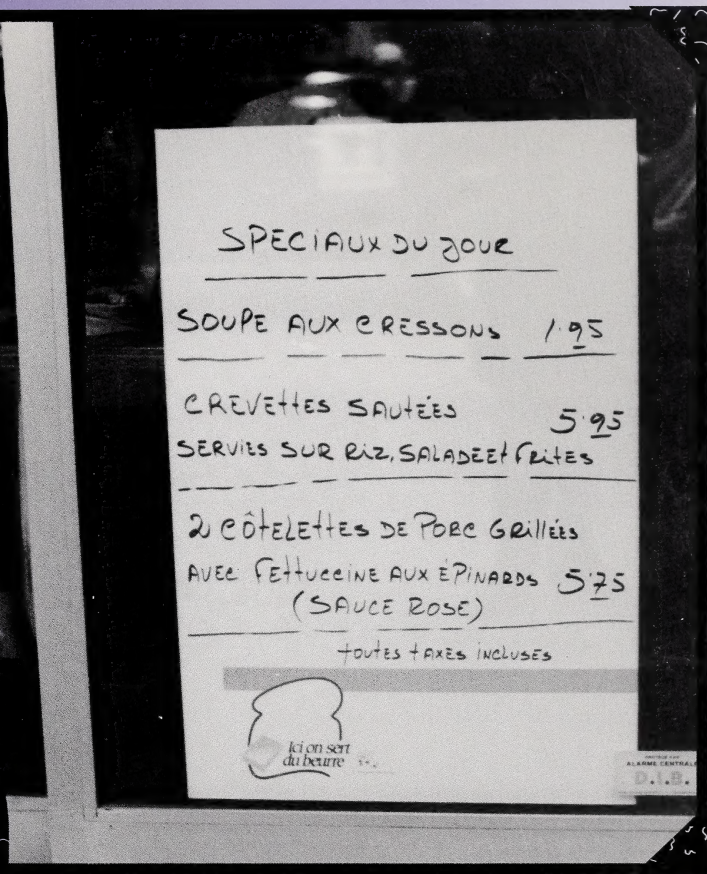 SPECIAUX DU JOUR
SOUPE AUX CRESSONS 1.95
CREVETTES SAUTÉES 5.95
SERVIES SUR RIZ, SALADE Et FRITES
2 CÔTELETTES DE PORC GRILLÉES
AVEC FETTUCCINE AUX ÉPINARDS 5.75
(SAUCE ROSE)
TOUTES TAXES INCLUSES
Ici on sert
du beurre
ALARME CENTRALE
D.I.B.